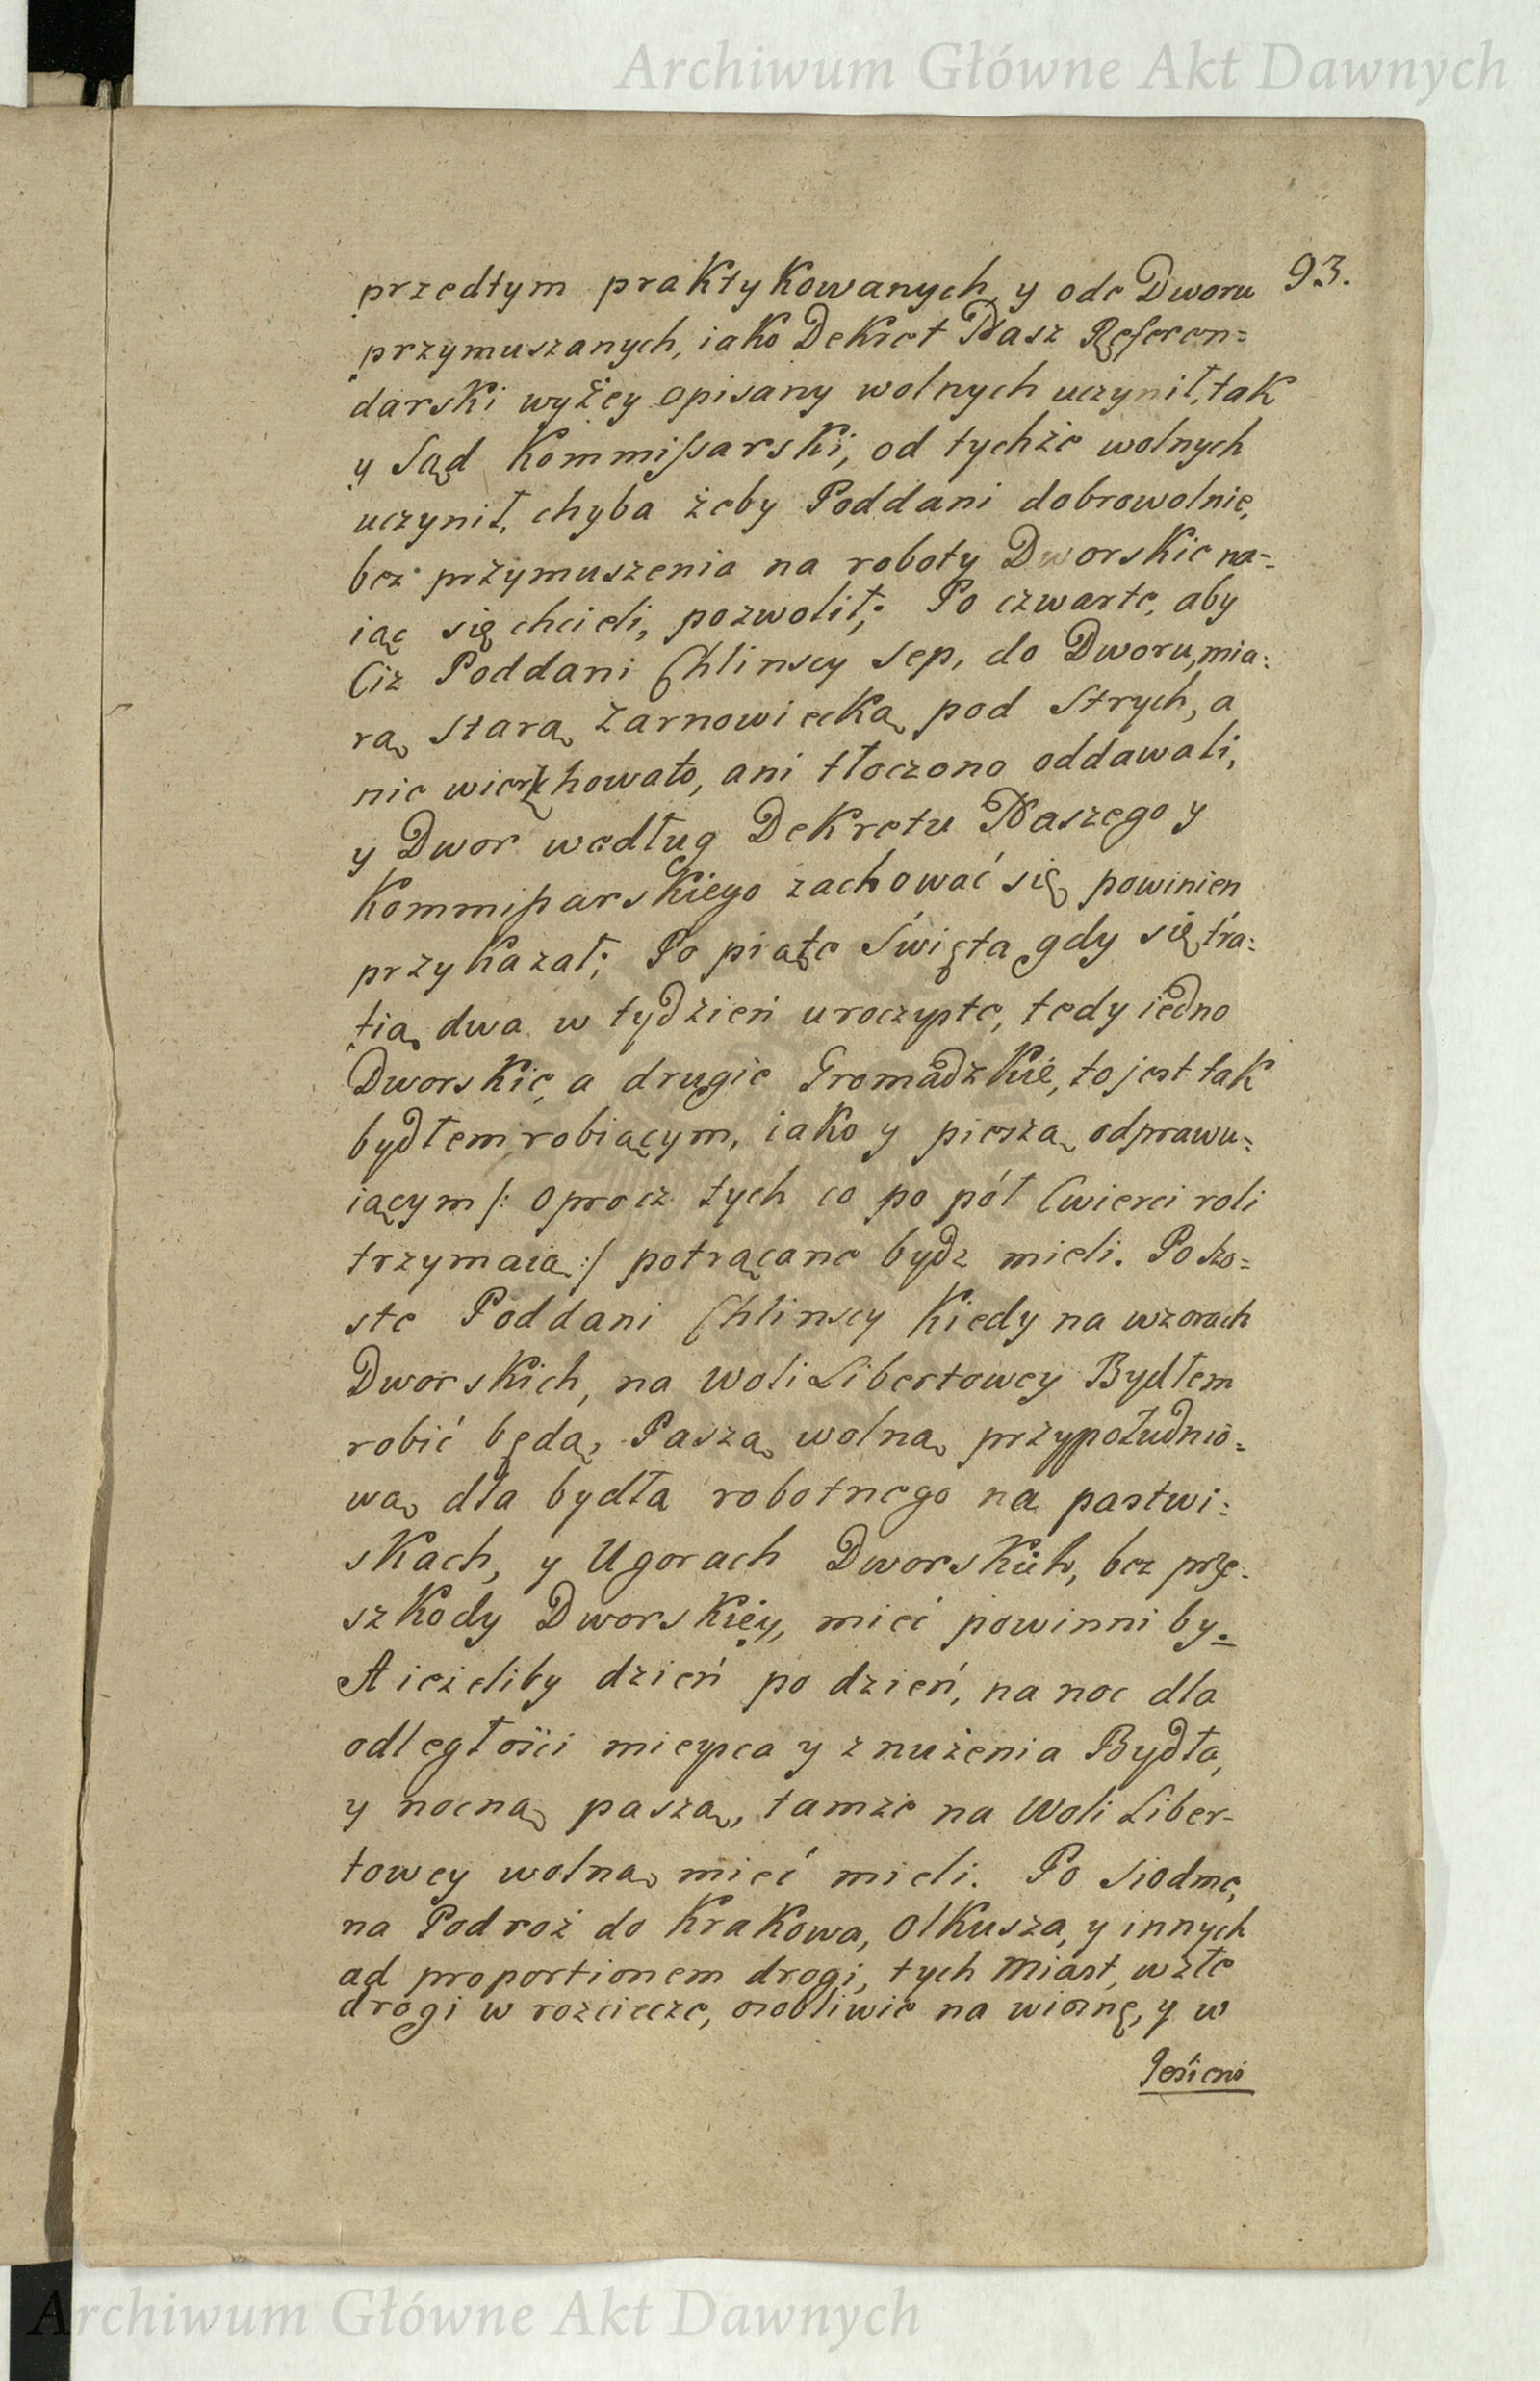 Archiwum Główne Akt Dawnych
93.
przedtym praktykowanych, y ode Dworu
przymuszanych, iako Dekret Nasz Referen=
darski wyżey opisany wolnych uczynił, tak
y Sąd Kommissarski, od tychże wolnych
uczynił, chyba żeby Poddani dobrowolnie,
bez przymuszenia na roboty Dworskie na=
iąć się chcieli, pozwolił; Po czwarte, aby
Ciż Poddani Chlinscy sep, do Dworu, mia=
rą starą Żarnowiecką pod Strych, a
nie wierzchowato, ani tłoczono oddawali,
y Dwor według Dekretu Naszego y
Kommissarskiego zachować się powinien
przykazał; Po piąte Święta gdy się tra=
fią dwa w tydzień uroczyste, tedy iedno
Dworskie, a drugie Gromadzkie, to jest tak
bydłem robiącym, iako y pieszą odprawu=
iącym /: oprocz tych co po pół Cwierci roli
trzymaią :/ potrącane bydz mieli. Po szo=
ste Poddani Chlinscy kiedy na wzorach
Dworskich, na Woli Libertowey Bydłem
robić będą, Paszą wolną przypołudnio=
wą dla bydła robotnego na pastwi=
skach, y Ugorach Dworskich, bez prze=
szkody Dworskiey, mieć powinni by=
A ieżeliby dzień po dzień, na noc dla
odległości mieysca y znużenia Bydła,
y nocną paszą, tamże na Woli Liber-
towey wolną mieć mieli. Po Siodme,
na Podroż do Krakowa, Olkusza, y innych
ad proportionem drogi, tych Miast, w złe
drogi w rozciecze, osobliwie na wiosnę, y w
Jesieni
Archiwum Główne Akt Dawnych